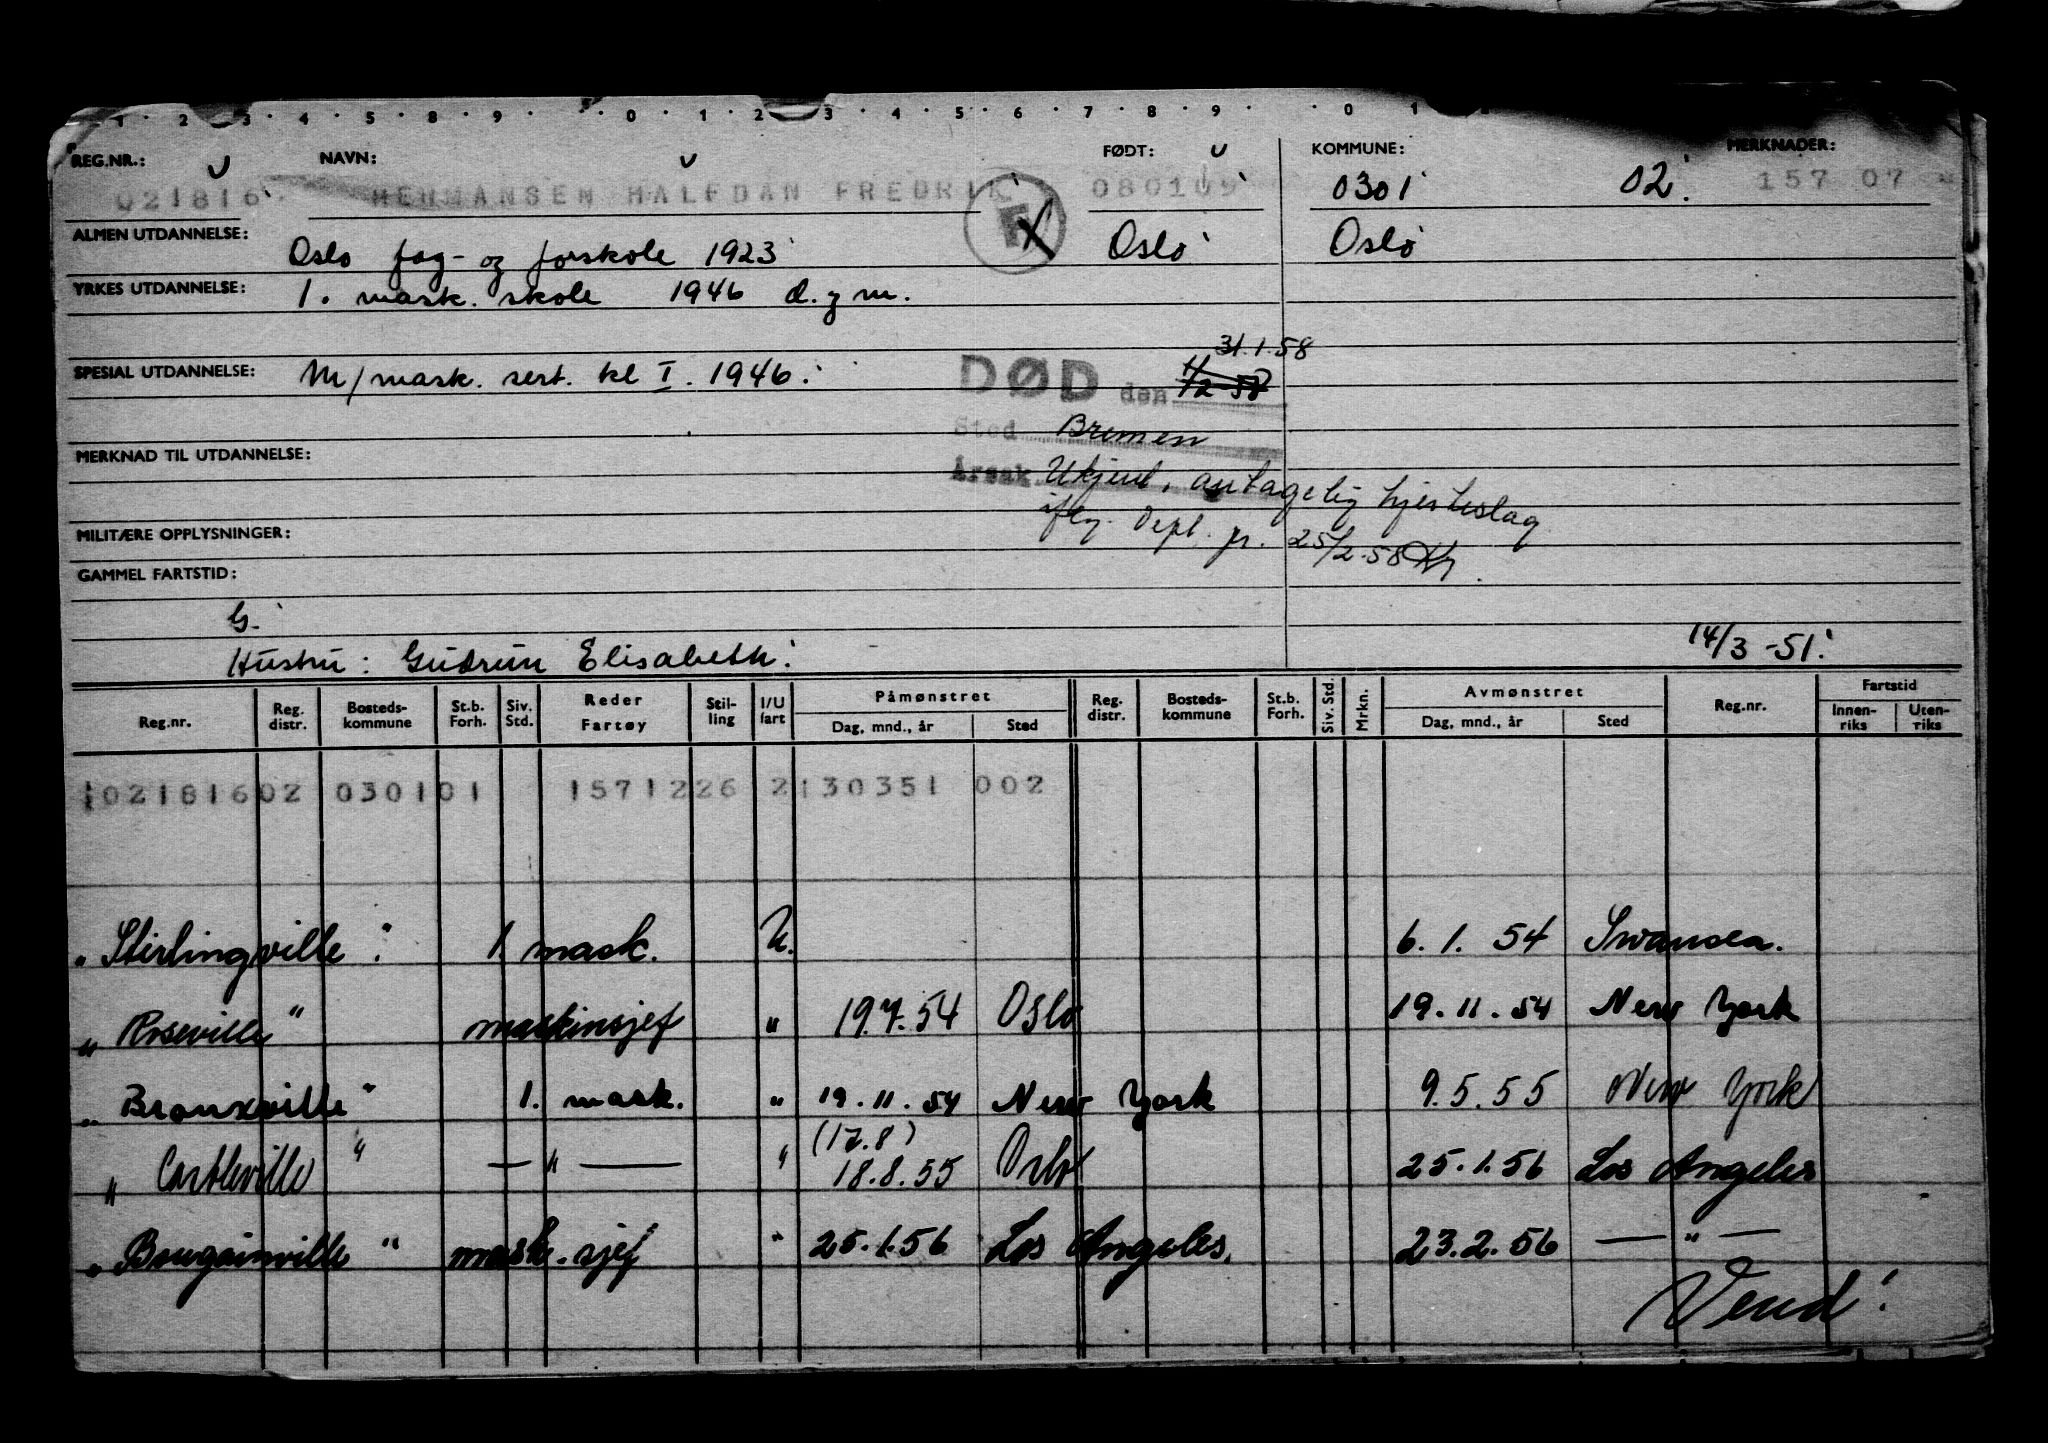 1 2 3 4 5 8 9 0 1 2 3 4 5 6 7 8 9 0 1
REG.NR.: NAVN: FØDT: KOMMUNE: MERKNADER:
021816 HERMANSEN HALFDAN FREDRIK 080109 0301 02. 157 07
ALMEN UTDANNELSE: Oslo fag- og forskole 1923 Oslo Oslo
YRKES UTDANNELSE: 1. mask. skole 1946 d. y m.
31.1.58
SPESIAL UTDANNELSE: M/mask. sert. kl I. 1946. DØD den 1/2-58
Sted Bremen
MERKNAD TIL UTDANNELSE:
Årsak Ukjent, antagelig hjerteslag
iflg. Dept. jr. 25/2-58
MILITÆRE OPPLYSNINGER:
GAMMEL FARTSTID:
G.
Hustru: Gudrun Elisabeth. 14/3-51.
Reg.nr. Reg. distr. Bosteds-kommune St.b. Forh. Siv. Std. Reder Fartøy Stil-ling I/U fart Påmønstret Dag, mnd., år Sted Reg. distr. Bosteds-kommune St.b. Forh. Siv. Std. Mrkn. Avmønstret Dag, mnd., år Sted Reg.nr. Fartstid Innen-riks Uten-riks
102181602 030101 1571226 2130351 002
"Stirlingville". 1. mask. U. 6.1.54 Swansea.
"Roseville" maskinsjef " 19.7.54 Oslo 19.11.54 New York
"Bronxville" 1. mask. " 19.11.54 New York 9.5.55 New York
(17.8)
"Castleville" — " — " 18.8.55 Oslo 25.1.56 Los Angeles
"Bougainville" mask. sjef " 25.1.56 Los Angeles. 23.2.56 — " —
Vend!